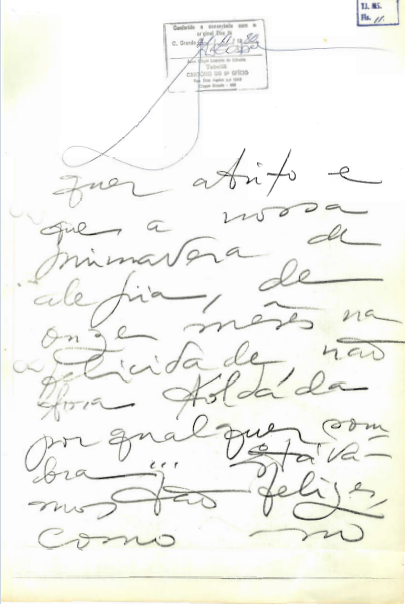 TJ. MS.
Fls. 11
Conferido e concertado com o
original Dou fé
C. Grande
Tabelião
CARTÓRIO DO 5º OFÍCIO
Campo Grande - MS
quer atrito e
que a nossa
primavera de
alegria, de
onze mêses na
felicidade, não
fora toldáda
por qualquer som
bra... Stáva-
mos tão felizes,
como no